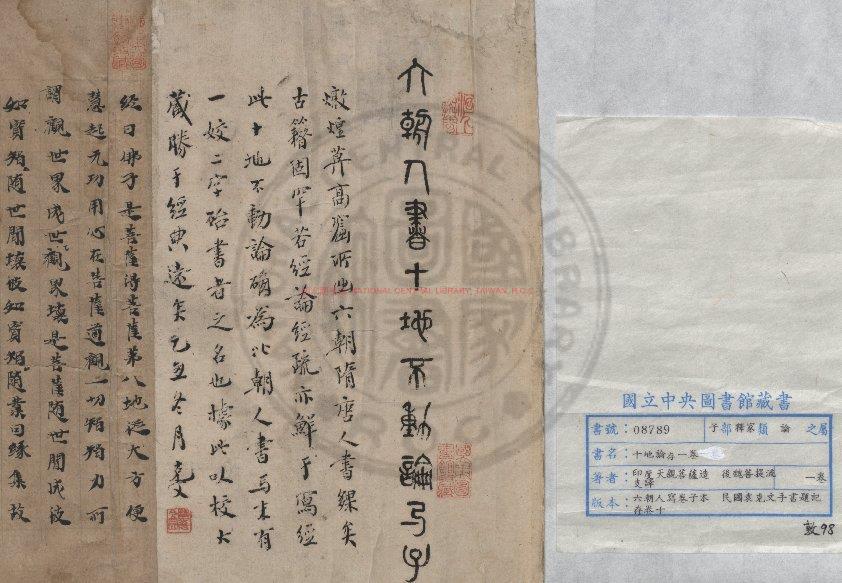 六朝人書十地不動論
燉煌莫高窟所出六朝隋唐人書繇矣
古籍固罕若經論經疏亦鮮于寫經
此十地不動論确為北朝人書馬末有
一姣二字殆書者之名也據此以校大
藏勝于經典遠矣乙丑冬月克文
經曰佛子是菩薩得菩薩第八地從大方便
慧起无功用心在菩薩道觀一切智智力所
謂觀世界成世觀界壞是菩薩隨世間成彼
如實知隨世間壞彼如實知隨業因緣集故
NATIONAL CENTRAL LIBRARY, TAIWAN, R.O.C
國立中央圖書館藏書
書號：08789 子部釋家類 論 之屬
書名：十地論存一卷
著者：印度天親菩薩造 後魏菩提流支譯 一卷
版本：六朝人寫卷子本 民國袁克文手書題記 存卷十
敦98